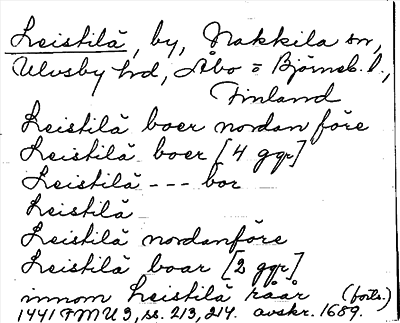 Leistilä, by, Nakkila sn,
Ulvsby hd, Åbo = Björneb. l.,
Finland
Leistilä boer nordan före
Leistilä boer [4 ggr]
Leistilä --- bor
Leistilä
Leistilä nordanföre
Leistilä boar [2 ggr]
innom Leistilä råår (forts.)
1441 FMU 3, ss. 213, 214. avskr. 1689.